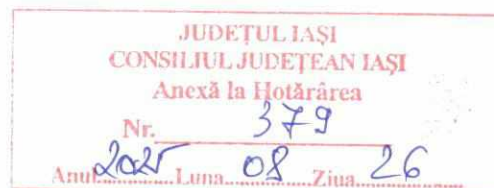 JUDEȚUL IAȘI
CONSILIUL JUDEȚEAN IAȘI
Anexă la Hotărârea
Nr. 379
Anul 2025 Luna 08 Ziua 26